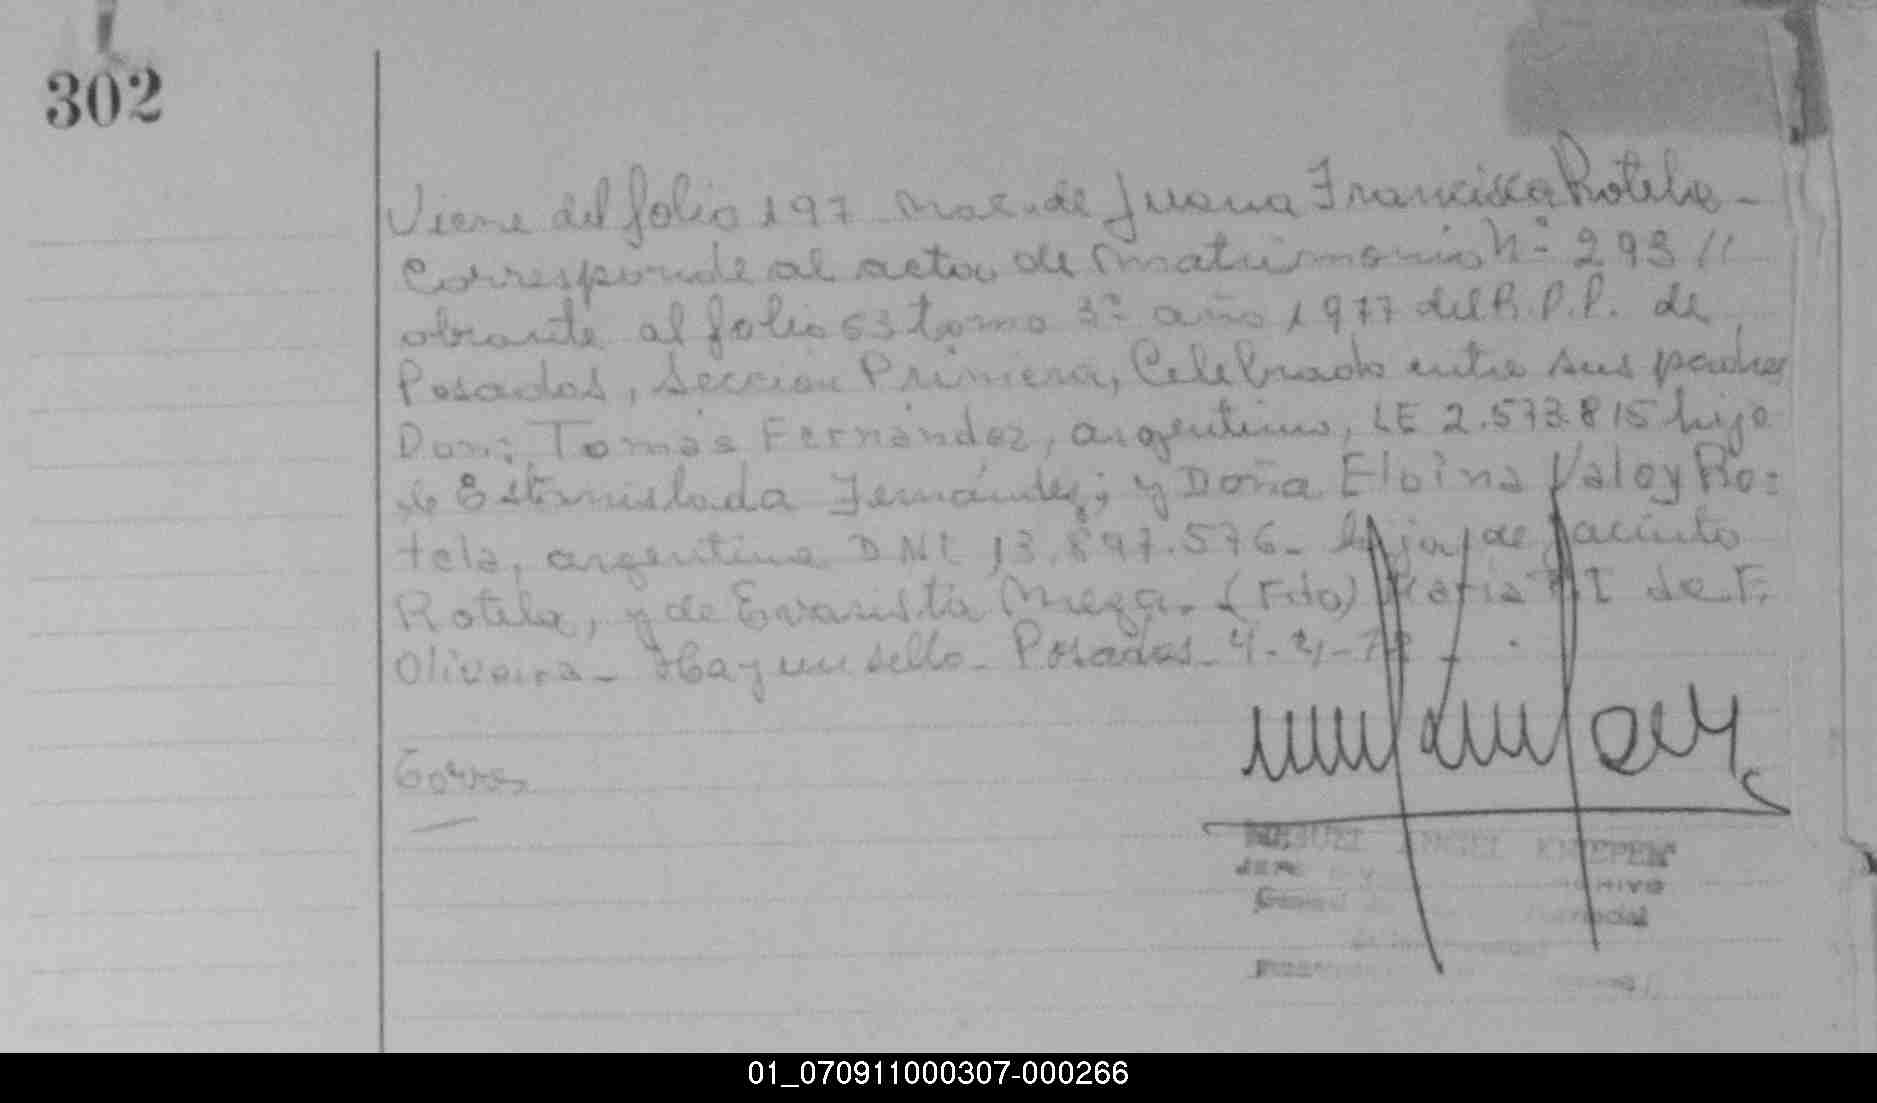 302
Viene del folio 197 Nac. de Juana Francisca Rotela -
Corresponde al acta de Matrimonio Nº 293 //
obrante al folio 63 tomo 3º año 1977 del R.P.P. de
Posadas, Sección Primera, Celebrado entre sus padres
Don: Tomás Fernández, argentino, LE 2.573.815 hijo
de Estanislada Fernández; y Doña Eloina Valoy Ro=
tela, argentina DNI 13.897.576- hija de Jacinto
Rotela, y de Evarista Meza. (Fdo) María I de F.
Oliveira- Hay un sello- Posadas-
ANGEL
01_070911000307-000266